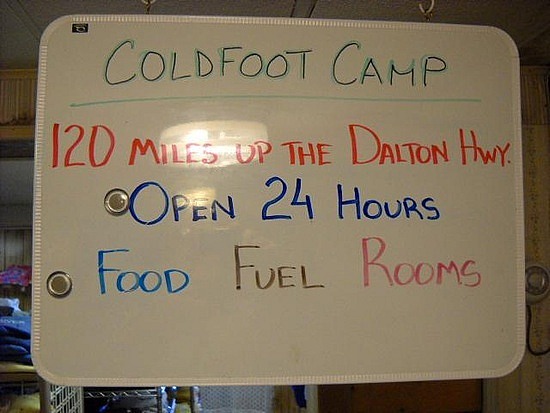 COLDFOOT CAMP
120 MILES UP THE DALTON HWY.
OPEN 24 HOURS
FOOD FUEL ROOMS